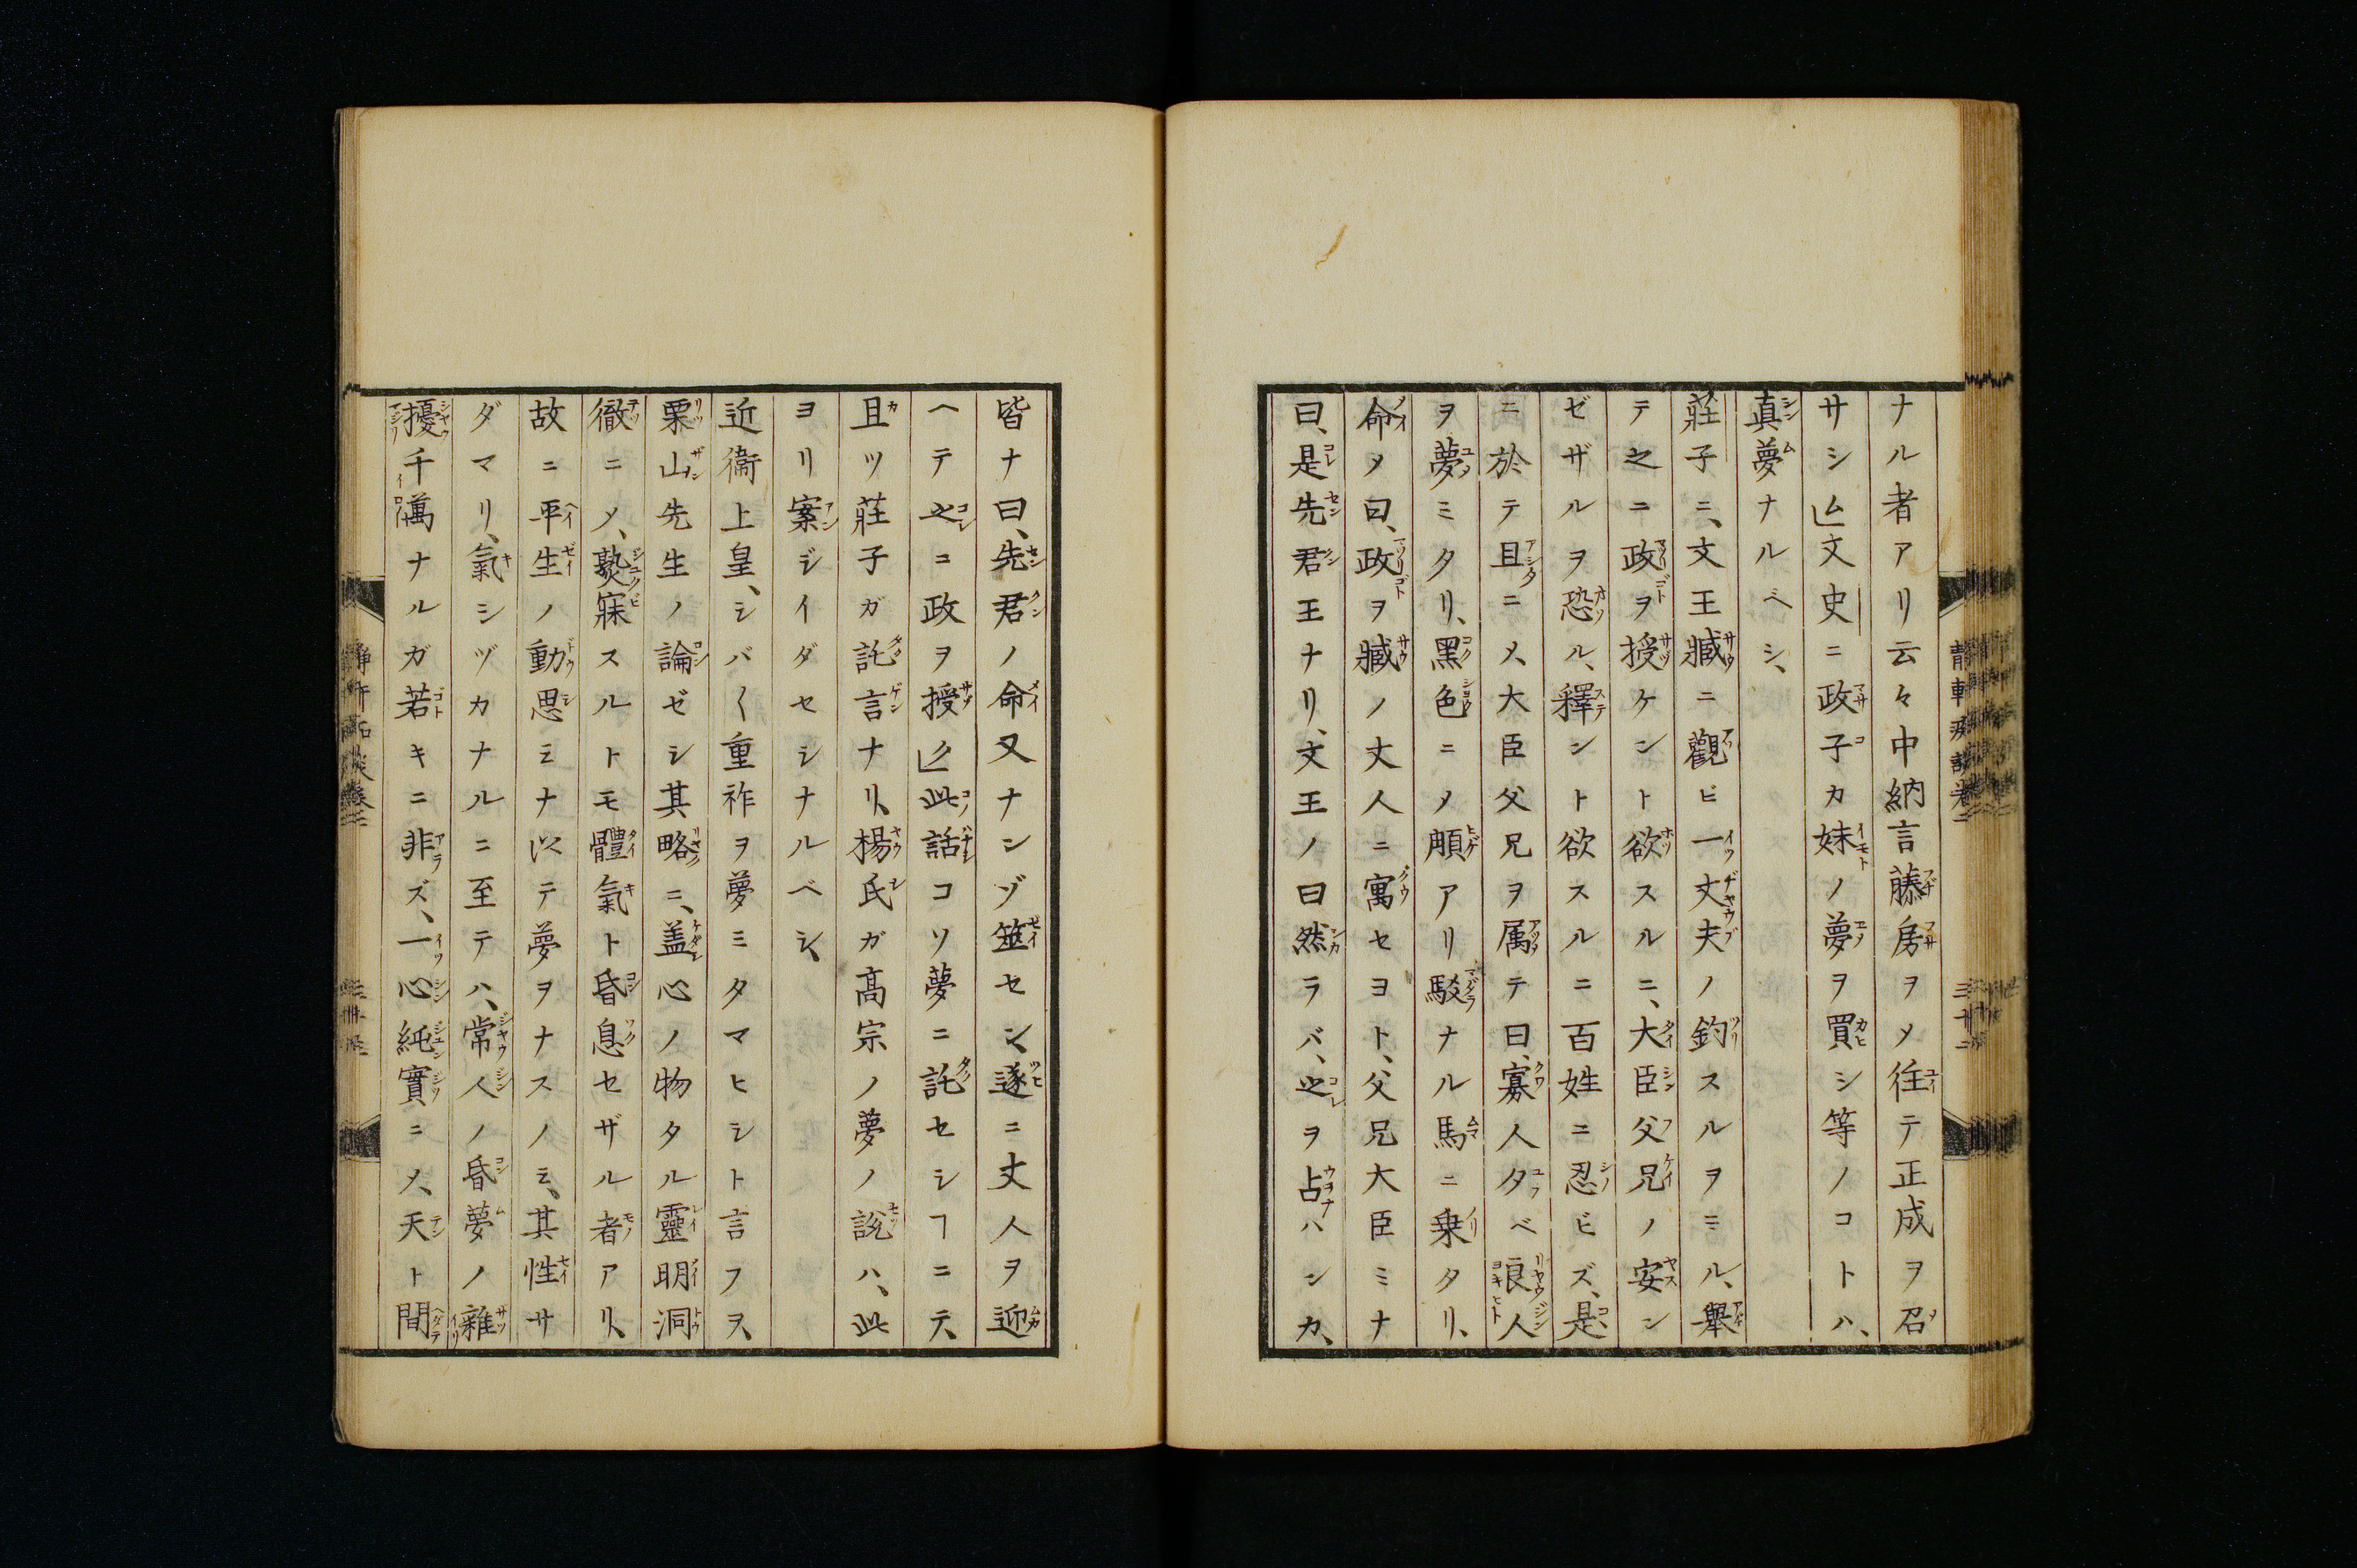 ナル者アリ云々中納言藤房ヲメ往テ正成ヲ召
サシム文史ニ政子カ妹ノ夢ヲ買シ等ノコトハ、
真夢ナルベシ、
莊子ニ、文王臧ニ觀ビ一丈夫ノ釣スルヲミル、舉
テ之ニ政ヲ授ケント欲スルニ、大臣父兄ノ安ン
ゼザルヲ恐ル、釋ント欲スルニ百姓ニ忍ビズ、是
ニ於テ且ニメ、大臣父兄ヲ属テ曰、寡人夕ベ良人
ヲ夢ミタリ、黑色ニノ䫇アリ駁ナル馬ニ乗タリ、
命メ曰、政ヲ臧ノ丈人ニ寓セヨト、父兄大臣ミナ
曰、是先君王ナリ、文王ノ曰然ラバ、之ヲ占ハンカ、
皆ナ曰、先君ノ命又ナンゾ筮セン、遂ニ丈人ヲ迎
ヘテ之コ政ヲ授ク此話コソ夢ニ託セシヿニテ、
且ツ莊子ガ託言ナリ、楊氏ガ髙宗ノ夢ノ說ハ、此
ヨリ案ジイダセシナルベシ、
近衞上皇、シバ〱重祚ヲ夢ミタマヒシト言フヲ、
栗山先生ノ論ゼシ其略ニ、盖心ノ物タル靈明洞
徹ニメ、熟寐スルトモ體氣ト昏息セザル者アリ、
故ニ平生ノ動思ミナ以テ夢ヲナスノミ、其性サ
ダマリ、氣シヅカナルニ至テハ、常人ノ昏夢ノ雜
擾千萬ナルガ若キニ非ズ、一心純實ニメ、天ト間